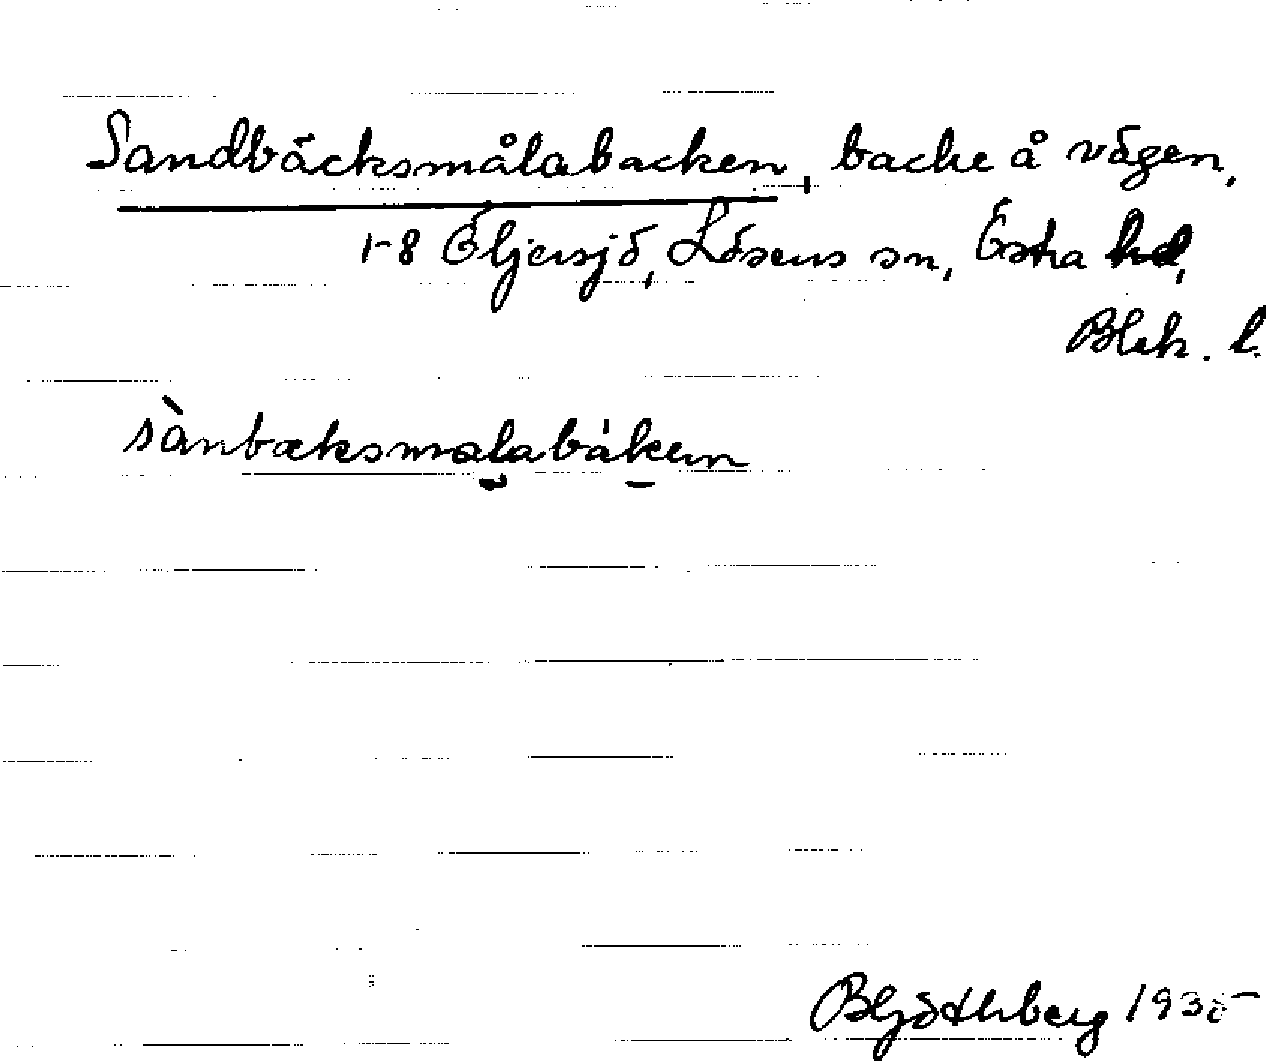 Sandbäcksmålabacken, backe å vägen,
1-8 Öljersjö, Lösens sn, Östra hd,
Blek. l.
sànbæksmålabáken
B Göthberg 1935